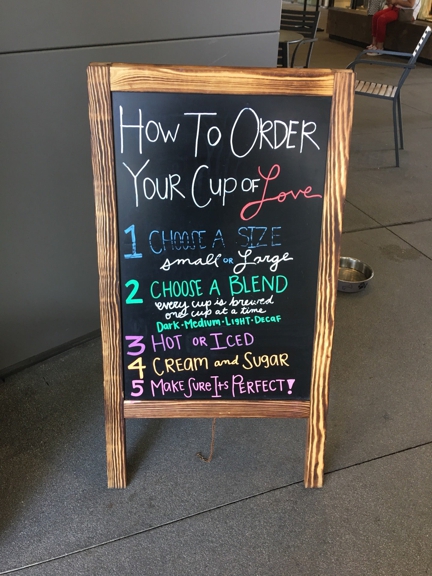 How To Order
Your Cup of Love
1 Choose A Size
small or Large
2 Choose A Blend
every cup is brewed
one cup at a time
Dark • Medium • Light • Decaf
3 Hot or Iced
4 Cream and Sugar
5 Make Sure Its Perfect!